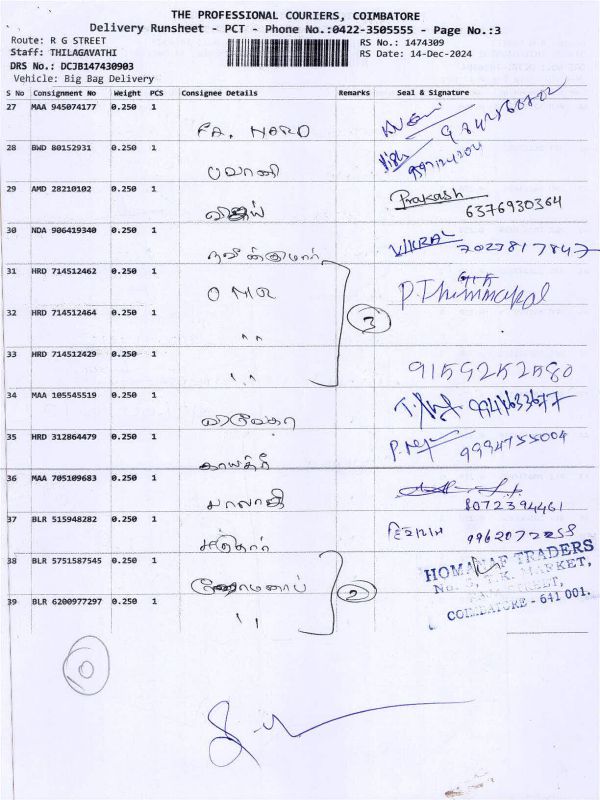 THE PROFESSIONAL COURIERS, COIMBATORE
Delivery Runsheet - PCT - Phone No.:0422-3505555 - Page No.:3
Route: R G STREET
Staff: THILAGAVATHI
DRS No.: DCJB147430903
Vehicle: Big Bag Delivery
RS No.: 1474309
RS Date: 14-Dec-2024
S No Consignment No Weight PCS Consignee Details Remarks Seal & Signature
27 MAA 945074177 0.250 1
28 BWD 80152931 0.250 1 பவானி
29 AMD 28210102 0.250 1 விஜய் Prakash
6376930364
30 NDA 906419340 0.250 1 நவீன்குமார் VIKRAL 7027817847
31 HRD 714512462 0.250 1 O MR
32 HRD 714512464 0.250 1 "
3
33 HRD 714512429 0.250 1 " 9159252580
34 MAA 105545519 0.250 1
35 HRD 312864479 0.250 1 காயத்ரி 9994755004
36 MAA 705109683 0.250 1 பாலாஜி
8072394461
37 BLR 515948282 0.250 1 9962072258
38 BLR 5751587545 0.250 1 ஹோமனாப்
2
39 BLR 6200977297 0.250 1 "
HOMANAF TRADERS
MARKET,
STREET,
COIMBATORE - 641 001.
0